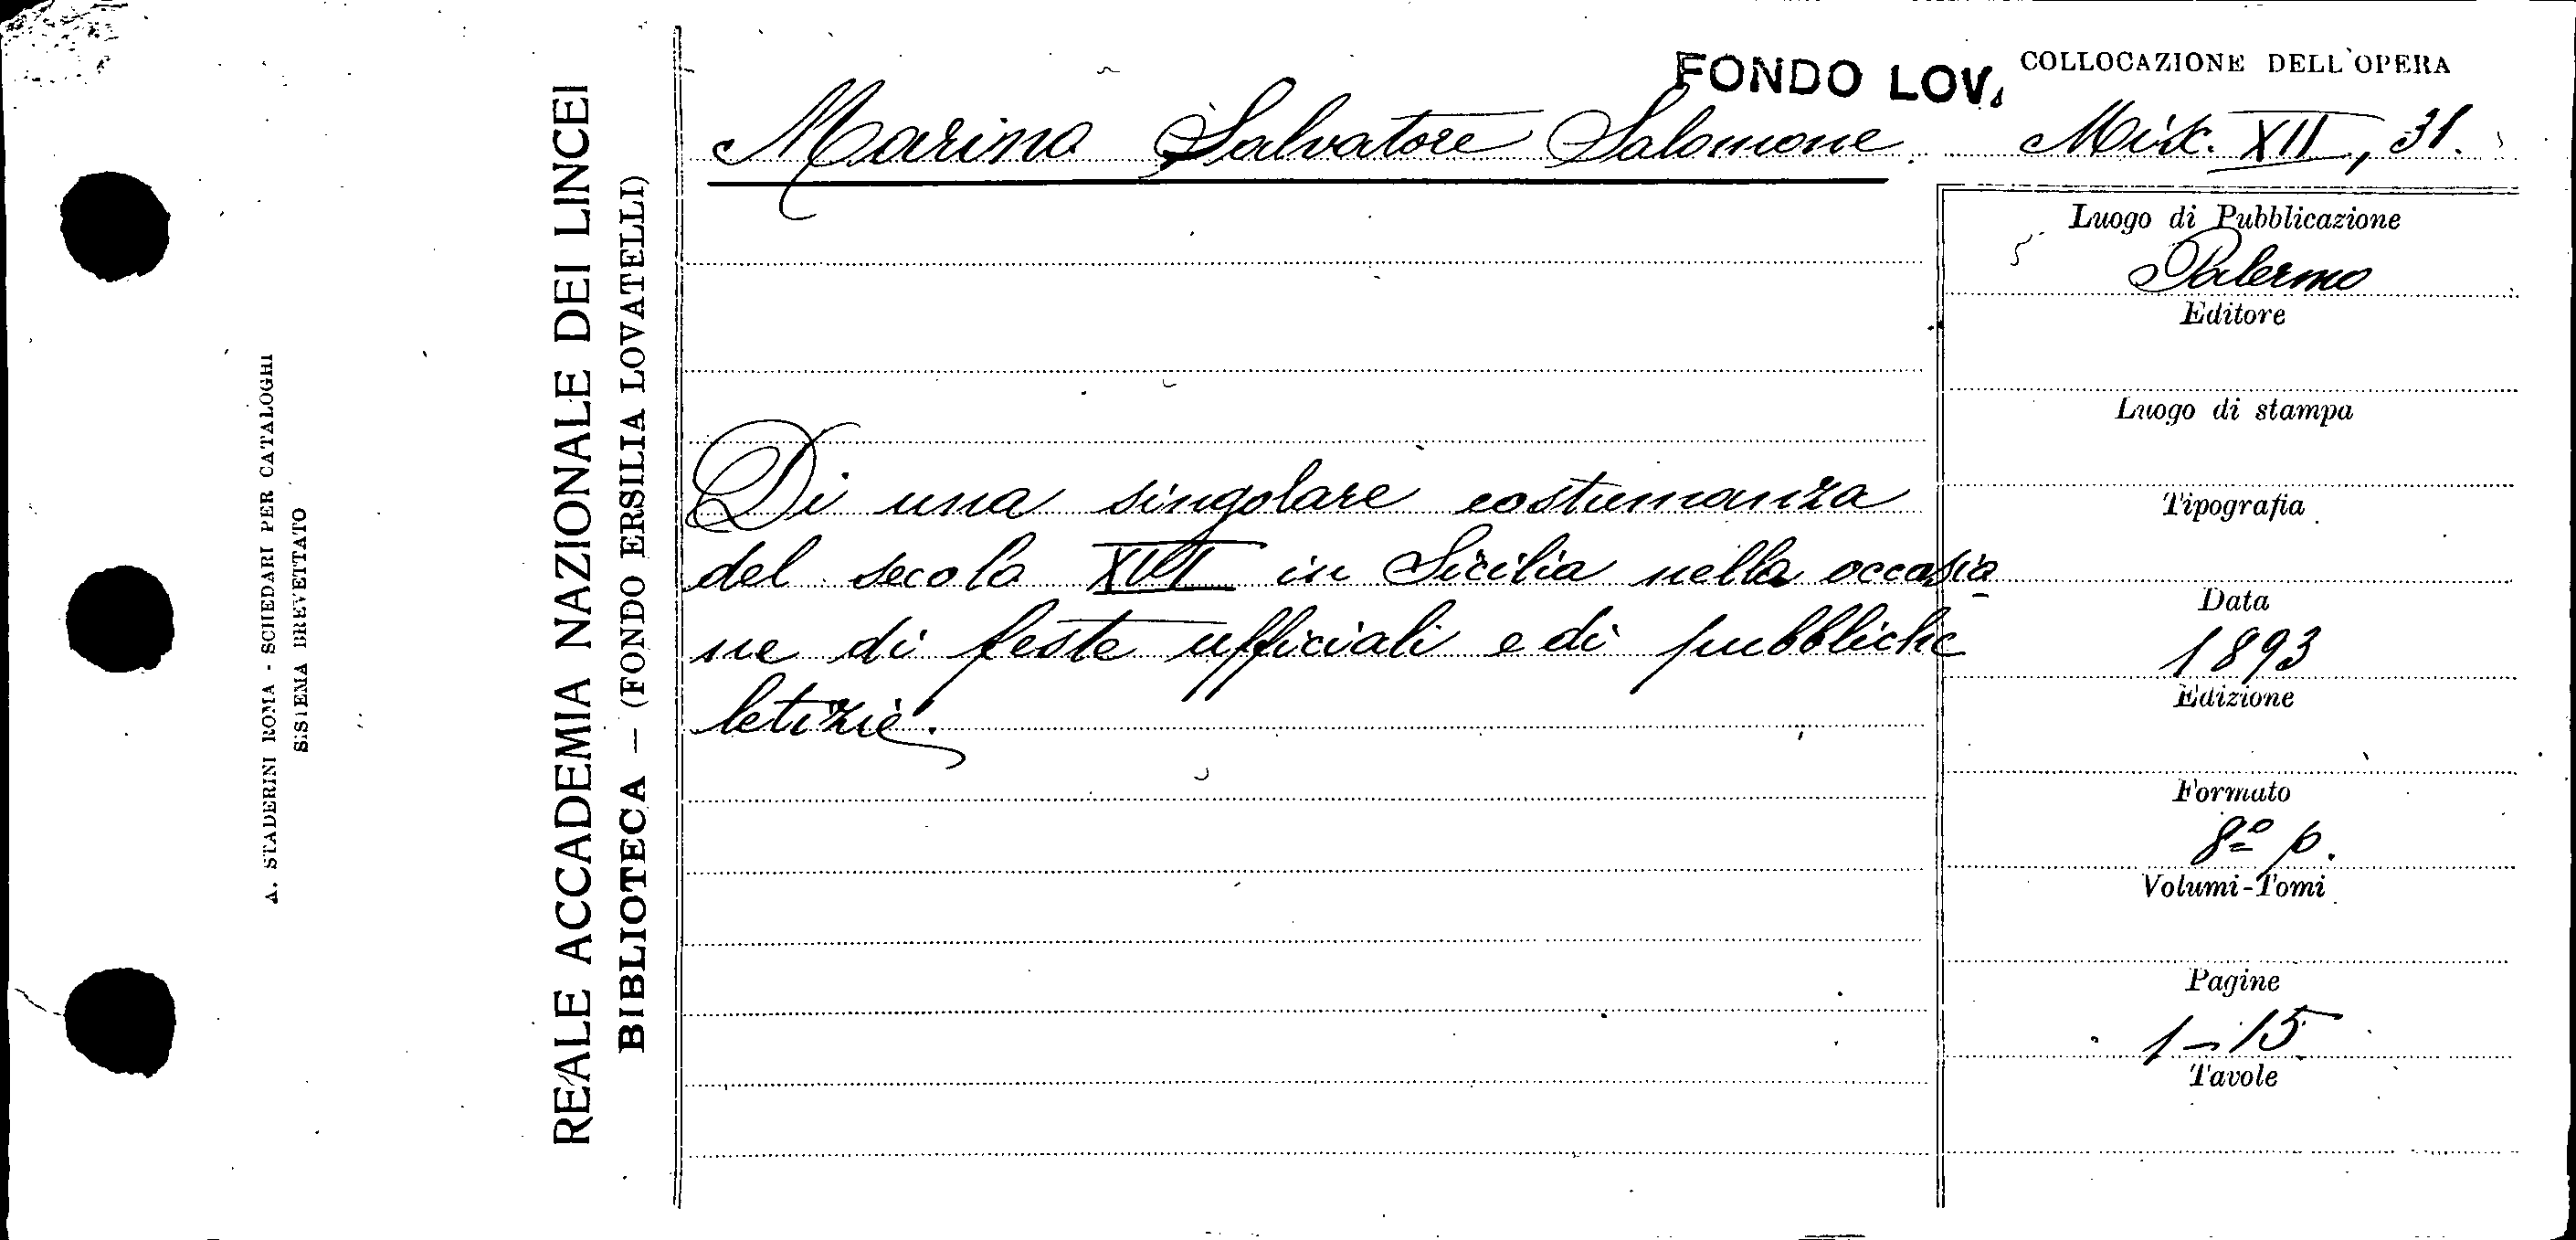 A. STADERINI ROMA - SCHEDARI PER CATALOGHI
SISTEMA BREVETTATO
REALE ACCADEMIA NAZIONALE DEI LINCEI
BIBLIOTECA — (FONDO ERSILIA LOVATELLI)
FONDO LOV.
COLLOCAZIONE DELL'OPERA
Marino Salvatore Salomone
Misc. XII, 31.
Di una singolare costumanza
del secolo XVI in Sicilia nella occasio
ne di feste ufficiali e di pubbliche
letizie.
Luogo di Pubblicazione
Palermo
Editore
Luogo di stampa
Tipografia
Data
1893
Edizione
Formato
8º p.
Volumi-Tomi
Pagine
1-15
Tavole